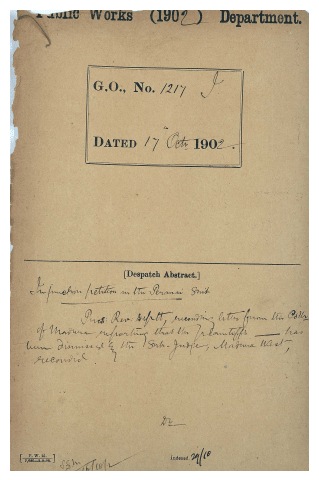 Public Works (1902) Department.
G.O., No. 1217 I
DATED 17th Octr. 1902.
[Despatch Abstract.]
Injunction petition in the Periyar Suit
Procs. Rev. Deptt., recording letter from the Collr
of Madura reporting that the has
been dismissed by the Sub-Judge, Madura West,
recorded.
Indexed 29/10